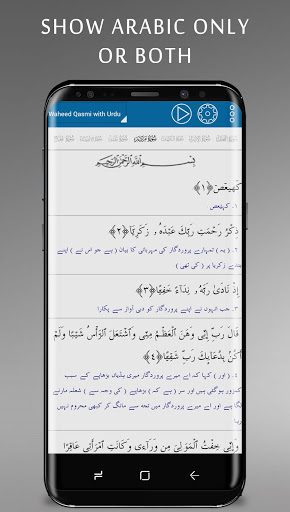 SHOW ARABIC ONLY
OR BOTH
Waheed Qasmi with Urdu
بِسْمِ اللَّهِ الرَّحْمَٰنِ الرَّحِيمِ
كٓهيعٓصٓ ﴿١﴾
۱. کہیعص
ذِكْرُ رَحْمَتِ رَبِّكَ عَبْدَهُۥ زَكَرِيَّآ ﴿٢﴾
۲. ( یہ ) تمہارے پروردگار کی مہربانی کا بیان ( ہے جو اس نے ) اپنے
بندے زکریا پر ( کی تھی )
إِذْ نَادَىٰ رَبَّهُۥ نِدَآءً خَفِيًّا ﴿٣﴾
۳. جب انہوں نے اپنے پروردگار کو دبی آواز سے پکارا
قَالَ رَبِّ إِنِّى وَهَنَ ٱلْعَظْمُ مِنِّى وَٱشْتَعَلَ ٱلرَّأْسُ شَيْبًا وَلَمْ
أَكُنۢ بِدُعَآئِكَ رَبِّ شَقِيًّا ﴿٤﴾
۴. ( اور ) کہا کہ اے میرے پروردگار میری ہڈیاں بڑھاپے کے سبب
کمزور ہوگئی ہیں اور سر ( ہے کہ ) بڑھاپے ( کی وجہ سے ) شعلہ مارنے
لگا ہے اور اے میرے پروردگار میں تجھ سے مانگ کر کبھی محروم نہیں
رہا
وَإِنِّى خِفْتُ ٱلْمَوَٰلِىَ مِن وَرَآءِى وَكَانَتِ ٱمْرَأَتِى عَاقِرًا